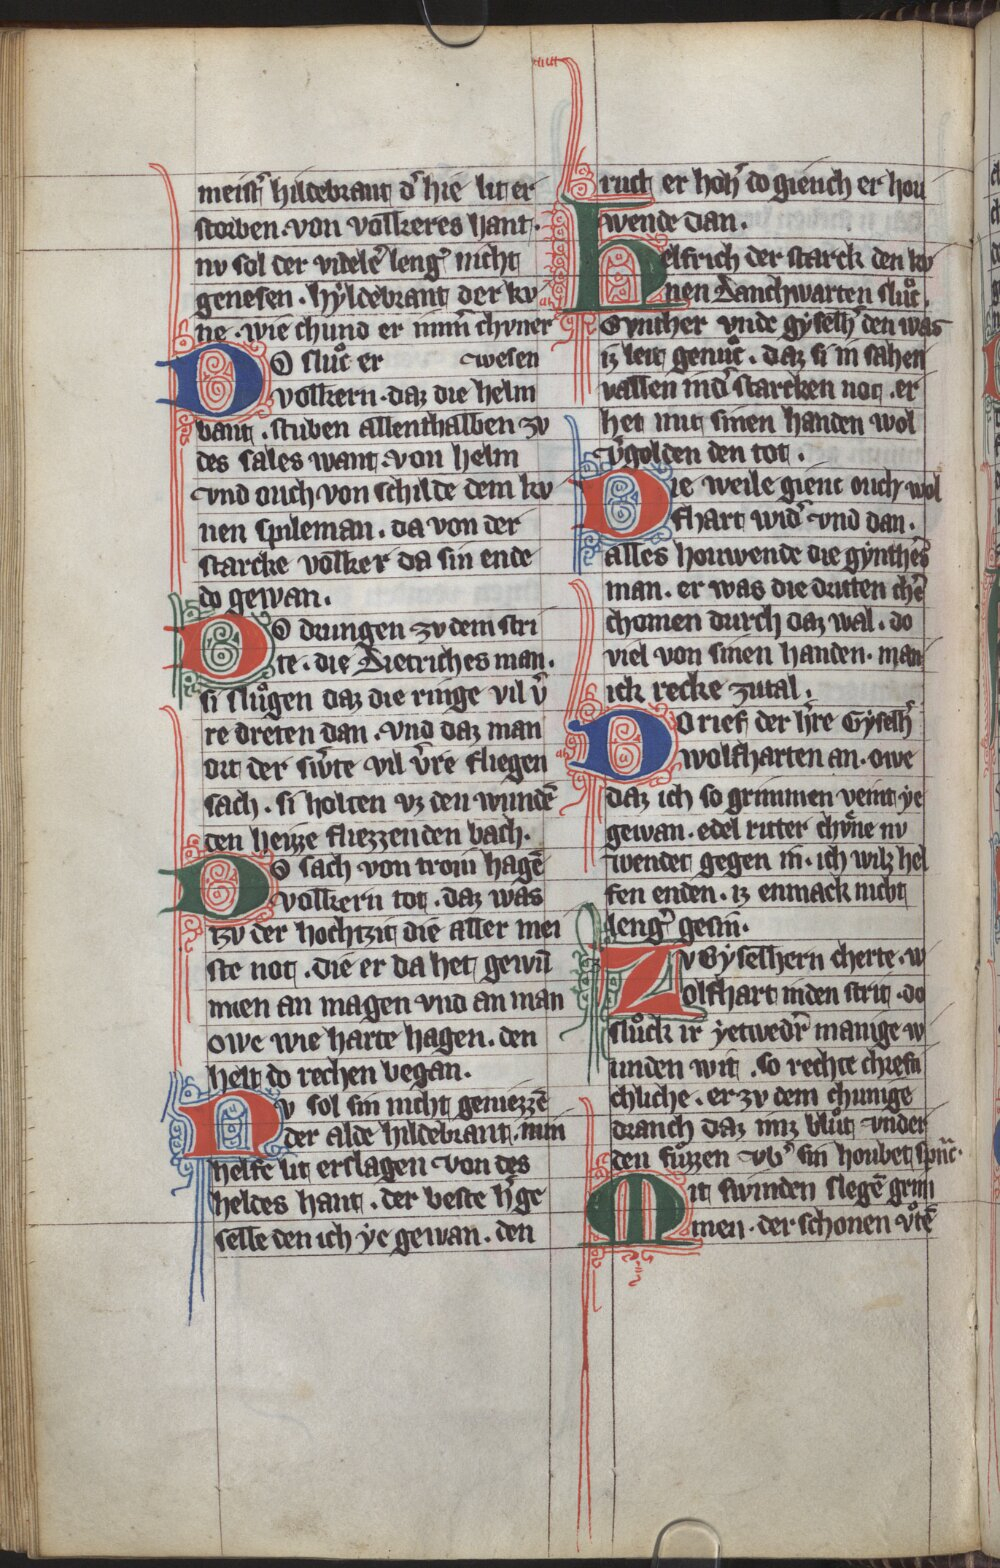 meist᷑ hildebrant d᷑ hie lit er
storben. von volkeres hant.
nv sol der videle᷑ leng᷑ nicht
genesen. hyldebrant der kv
ne. wie chund er imm̄ chvner
Do sluͦc er wesen
volkern. daz die helm
bant. stuben allenthalben zv
des sales want. von helm
vnd ouch von schilde dem kv
nen spileman. da von der
starcke volker da sin ende
do gewan.
Do drungen zv dem stri
te. die Dietriches man.
si sluͦgen daz die ringe vil v᷑
re dreten dan. vnd daz man
ort der sw᷑te vil v᷑re fliegen
sach. si holten vz den wundē
den heize fliezzenden bach.
Do sach von troni hagē
volkern tot. daz was
tzv der hochtzit die aller mei
ste not. die er da het gewū
nen an magen vnd an man
owe wie harte hagen. den
helt do rechen began.
Nv sol sin nicht geniezzē
der alde hildebrant. min
helfe lit erslagen von des
heldes hant. der beste h᷑ge
selle den ich ye gewan. den
ruck er hoh᷑ do giench er hou
wende dan.
Helfrich der starck den kv
nen Danchwarten sluͦc.
Gynther vnde gyselh᷑ den was
iz leit genuͦc. daz si in sahen
vallen in d᷑ starcken not. er
het mit sinen handen wol
v᷑golden den tot.
Die weile gienc ouch wol
fhart wid᷑ vnd dan.
alles houwende die gynthe᷑s
man. er was die dritten che᷑
chomen durch daz wal. do
viel von sinen handen. man
ick recke zutal.
Do rief der h᷑re Gyselh᷑
wolfharten an. owe
daz ich so grimmen veint ye
gewan. edel ritter chvͤne nv
wendet gegen in. ich wilz hel
fen enden. iz enmack nicht
leng᷑ gesin.
Zv Gyselhern cherte. w
olfhart in den strit. do
sluͦck ir yetwed᷑r manige w
unden wit. so rechte chrefti
chliche. er zv dem chunige
dranch daz imz bluͦt vnder
den fuͤzzen vb᷑ sin houbet spnc̄.
Mit swinden slegē grim
men. der schonen vͦtē